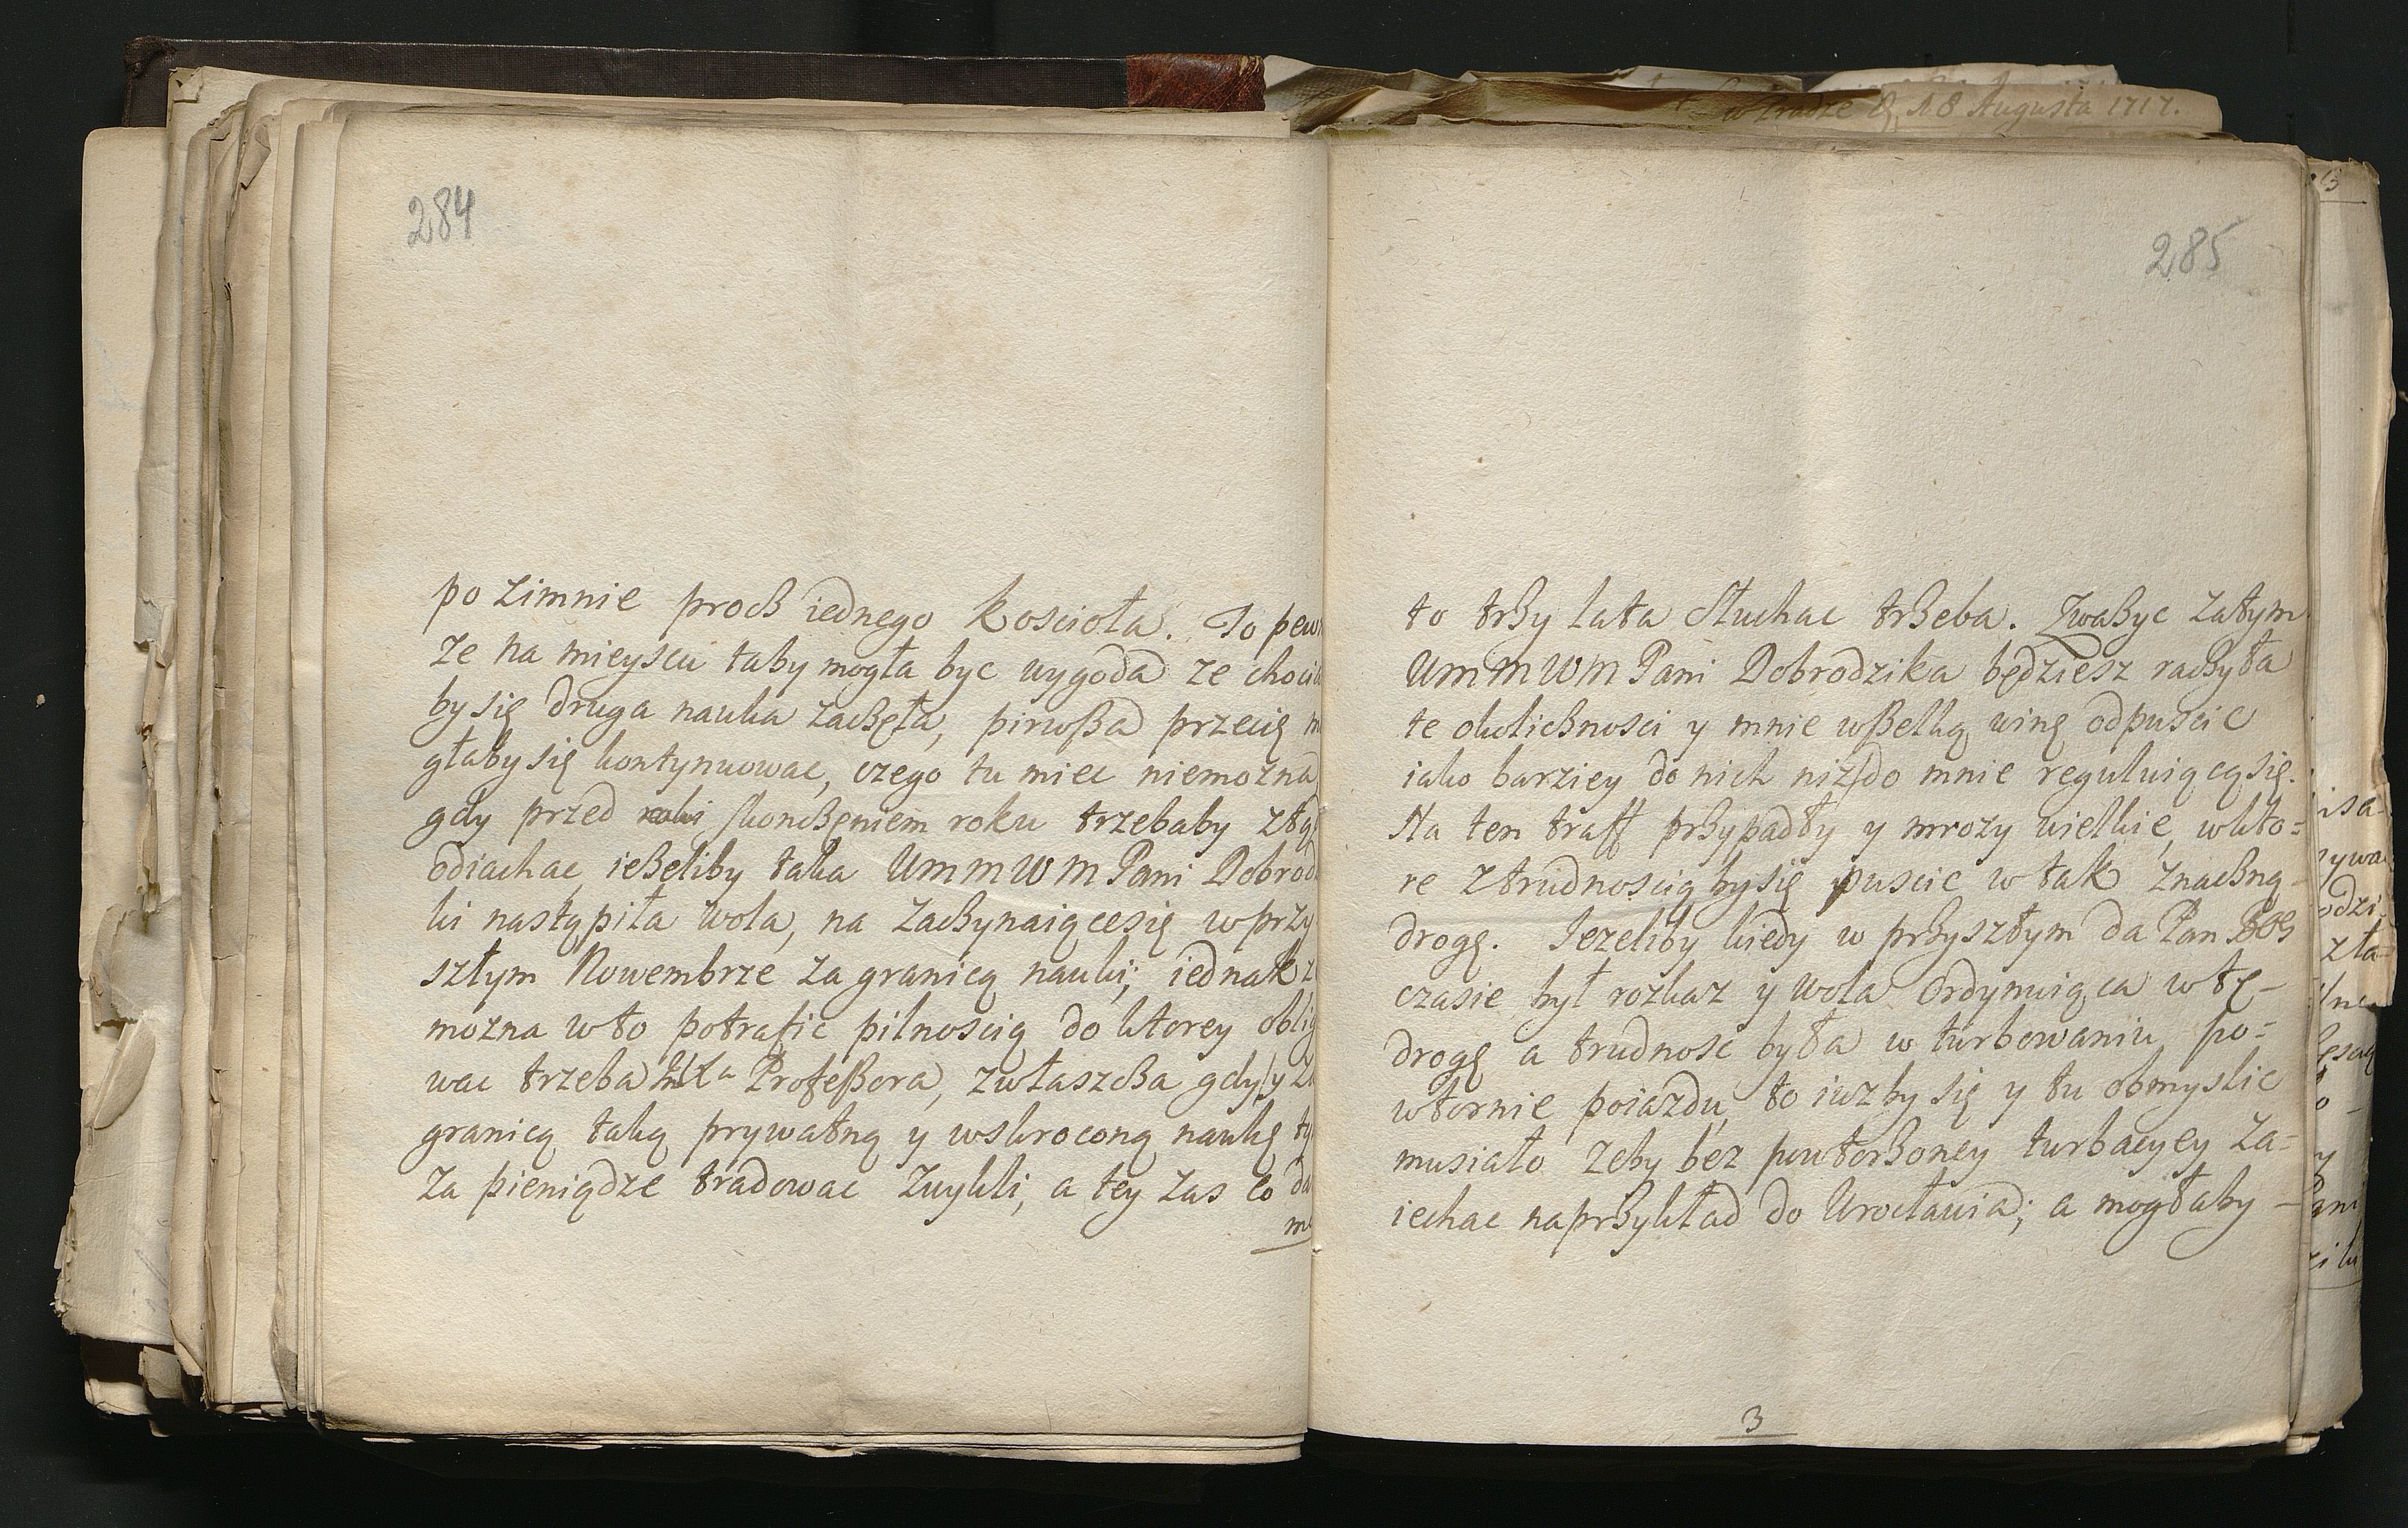 w Pradze D 18 Augusta 1717.
284
po zimnie procß iednego koscioła. To pew
ze na mieyscu taby mogła byc wygoda ze choci
by się druga nauka zacßęła, pirwßa przecię m
głaby się kontynuowac, czego tu miec niemozna
gdy przed skoncßęniem roku trzebaby ztą
odiachac, ießeliby taka UmmWM Pani Dobrod
ki nastąpiła wola, na zacßynaiącesię wprzy
szłym Nowembrze za granicą nauki; iednak z
mozna wto potrafic pilnoscią do ktorey oblig
wac trzeba Profeßora, zwłaszcßa gdy y z
granicą taką prywatną y wskroconą naukę ty
za pieniądze tradowac zwykli, a tey zas co da
m
285
to trßy lata słuchac trßeba. Zwaßyc zatym
UmmWM Pani Dobrodzika będziesz racßyła
te okolicßnosci y mnie wßelką winę odpuscic
iako barziey do nich niz do mnie reguluiącąsię.
Na ten traff prßypadły y mrozy wielkie, wkto=
re ztrudnosciąbysię puscic w tak znacßną
drogę. Iezeliby kiedy w prßyszłym da Pan Bog
czasie był rozkaz y wola ordynuiąca wtę-
drogę a trudnosc była w turbowaniu po=
wtornie poiazdu, to iuzby się y tu obmyslic
musiało zeby bez powtorßoney turbacyey za=
iechac naprßykład do Wrocławia; a mogłaby -
3